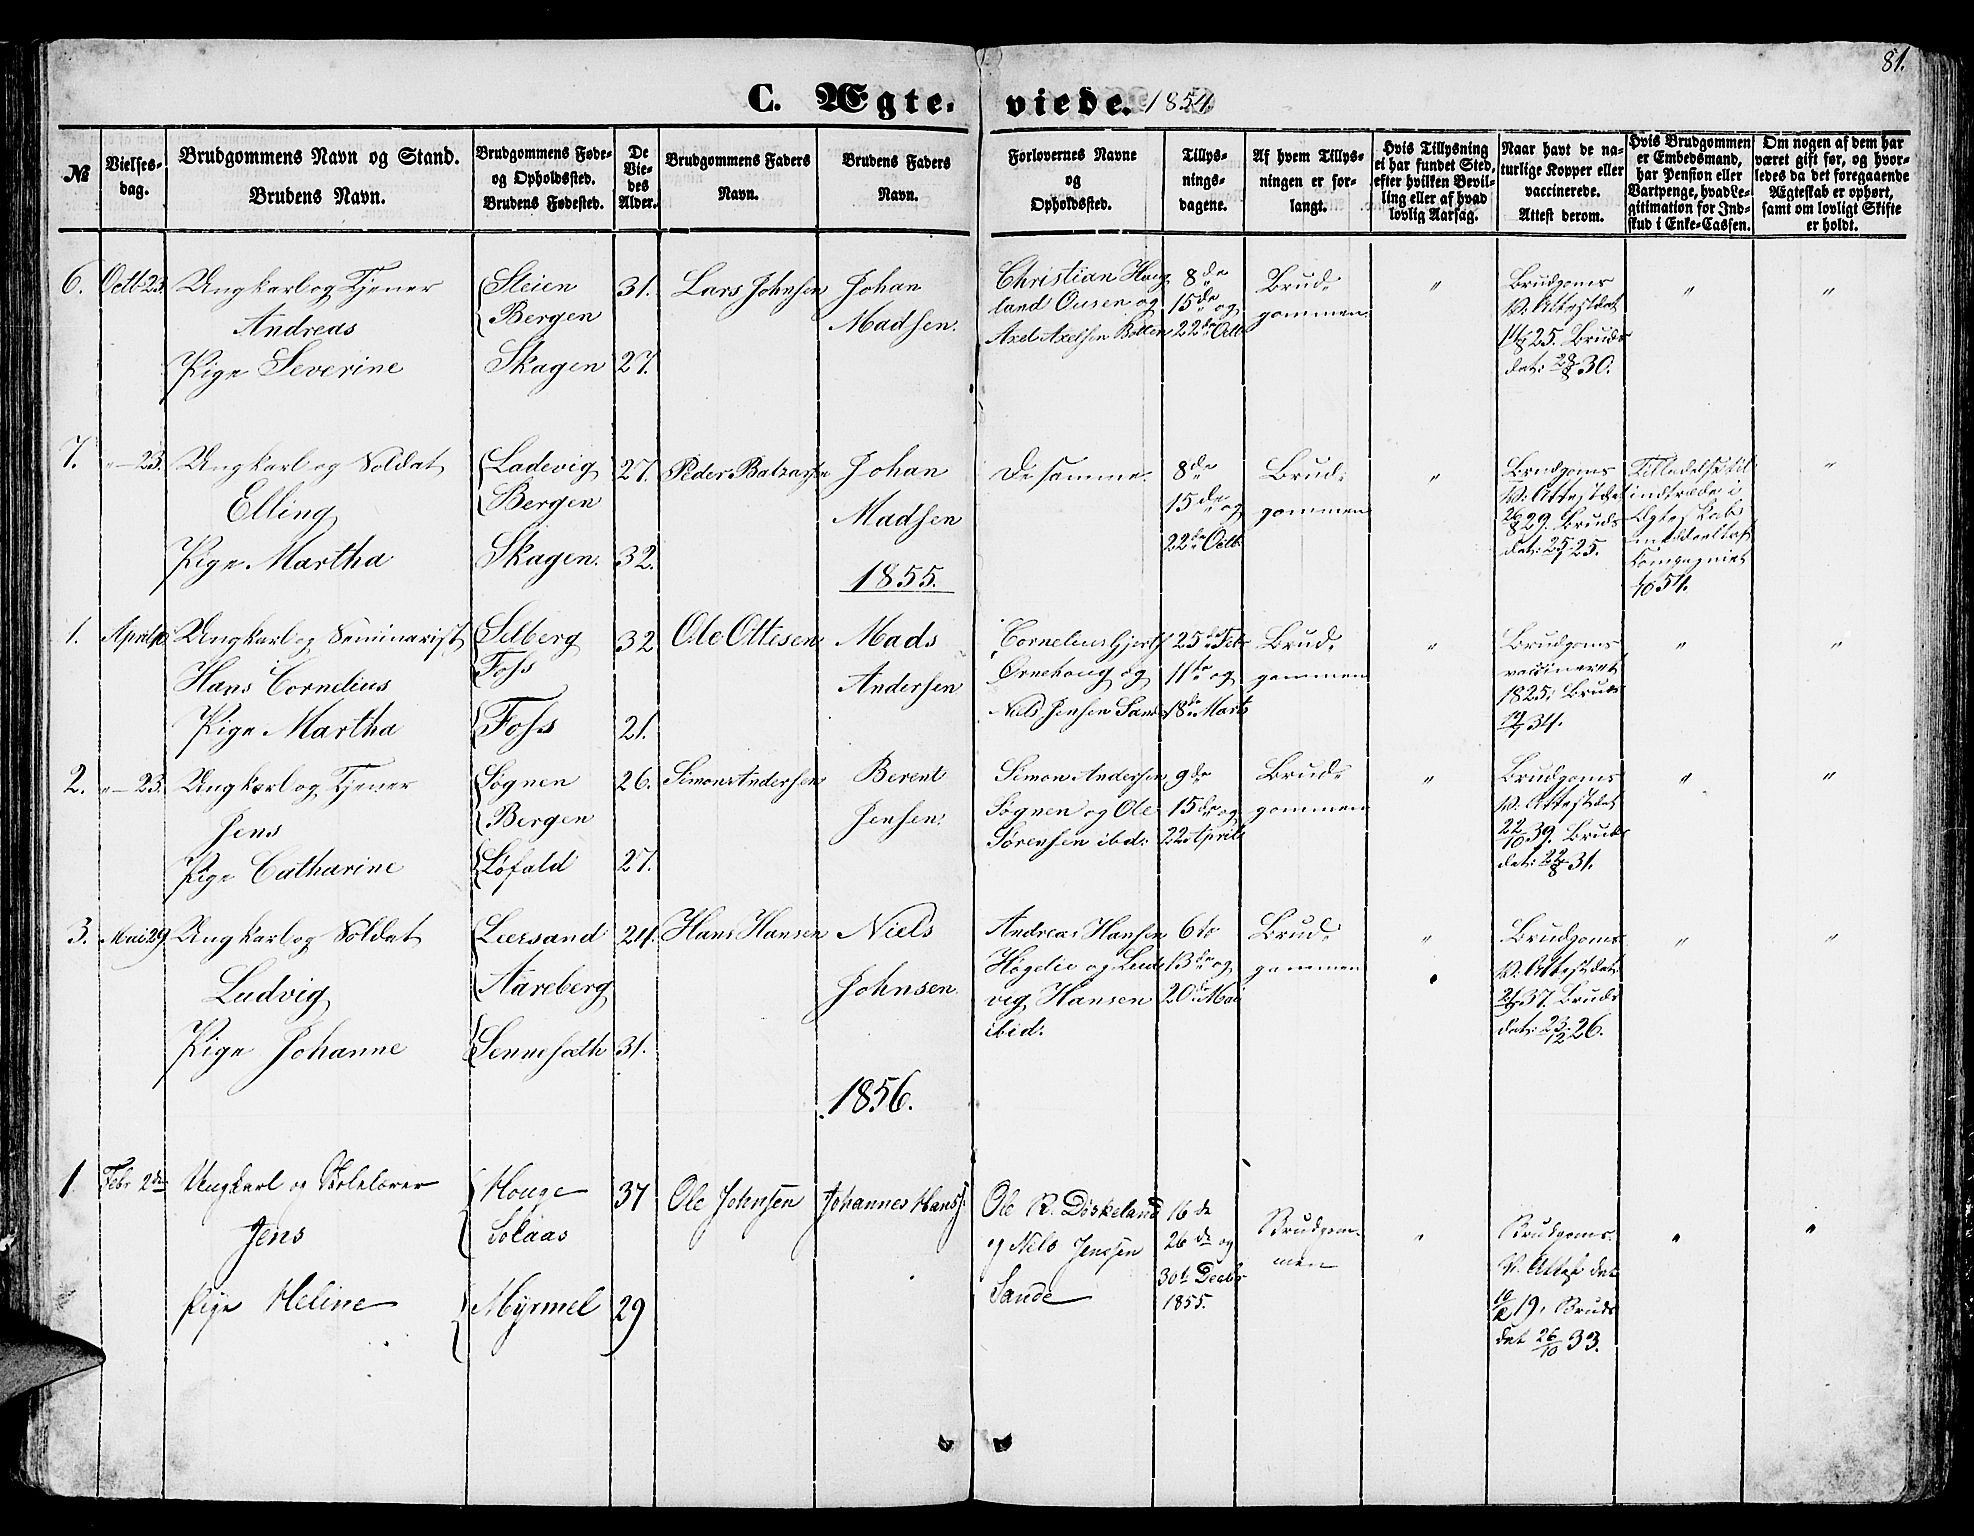 81.
C. Ægteviede. 1854.
№
Vielsesdag.
Brudgommens Navn og Stand.
Brudens Navn.
Brudgommens Føde-
og Opholdssted.
Brudens Fødested.
De
Vie-
des
Alder.
Brudgommens Faders
Navn.
Brudens Faders
Navn.
Forlovernes Navne
og
Opholdssted.
Tillys-
nings-
dagene.
Af hvem Tillys-
ningen er for-
langt.
Hvis Tillysning
ei har fundet Sted,
efter hvilken Bevil-
ling eller af hvad
lovlig Aarsag.
Naar havt de na-
turlige Kopper eller
vaccinerede.
Attest derom.
Hvis Brudgommen
er Embedsmand,
har Pension eller
Vartpenge, hvad Le-
gitimation for Ind-
skud i Enke-Cassen.
Om nogen af dem har
været gift før, og hvor-
ledes da det foregaaende
Ægteskab er ophørt,
samt om lovligt Skifte
er holdt.
6. Octb 23. Ungkarl og Tjener
Andreas
Pige Severine
Steien
Bergen
Skagen
31.
27.
Lars Johnsen
Johan
Madsen.
Christian Haug
land Ousen og
Axel Axelsen
8de
15de og
22de Octb
Brud-
gommen
"
Brudgoms
V. Attest dat
25. Bruds
dat: 28/8 30.
"
"
7. "-23. Ungkarl og Soldat
Elling
Pige Martha
Ladevig
Bergen
Skagen.
27.
32.
Peder Balzarsen
Johan
Madsen
De samme.
8de
15de og
22de Octb
Brud-
gommen
"
Brudgoms
V. Attest dat
26/8 29. Bruds
dat: 25.
Tilladelse til
indtræde i
Ægteskab
meddeelt af
Kompagniet
54.
"
1855.
1. April Ungkarl og Seminarist
Hans Cornelius
Pige Martha
Selberg
Foss
Foss
32
21.
Ole Ottesen
Mads
Andersen
Cornelius
Ornehoug og
Niels Jensen Sande
25de Febr
11te og
18de Marts
Brud-
gommen
"
Brudgoms
vaccineret
1825. Bruds
34.
"
"
2. "-23. Ungkarl og Tjener
Jens
Pige Catharine
Søgnen
Bergen
Løfald
26.
27.
Simon Andersen
Berent
Jensen.
Simon Andersen
Søgnen og Ole
Sørensen ibd:
9de
15de og
22 April
Brud-
gommen
"
Brudgoms
V. Attest dat
22/10 39. Bruds
dat: 22/8 31.
"
"
3. Mai 29. Ungkarl og Soldat
Ludvig
Pige Johanne
Leersand
Aareberg
Sennesæth
24.
31.
Hans Hansen
Niels
Johnsen.
Andreas Hansen
Høgelie og Lud-
vig Hansen
ibid:
6te
13de og
20de Mai
Brud-
gommen
"
Brudgoms
V. Attest dat.
37. Bruds
dat: 23/12 26.
"
"
1856.
1 Febr 2den Ungkarl og Skolelærer
Jens
Pige Heline
Houge
Solaas
Myrmel
37
29
Ole Johnsen
Johannes Hans.
Ole R. Døskeland
og Nils Jensen
Sande
16de
26de og
30te Decbr
1855.
Brudgom-
men
"
Brudgoms.
V. Attest dat
19. Bruds
dat 26/10 33.
"
"